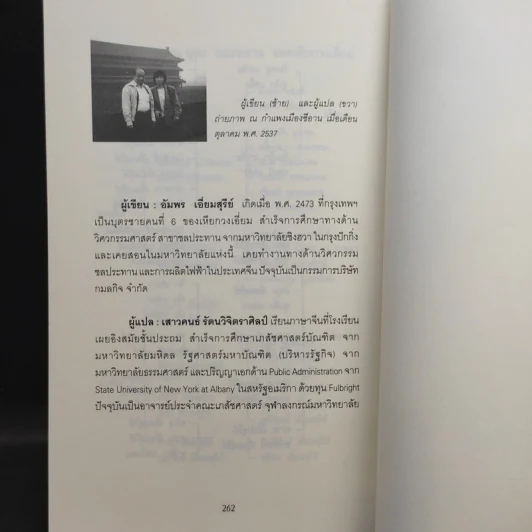 ผู้เขียน (ซ้าย) และผู้แปล (ขวา)
ถ่ายภาพ ณ กำแพงเมืองซีอาน เมื่อเดือน
ตุลาคม พ.ศ. 2537
ผู้เขียน : อัมพร เอี่ยมสุรีย์ เกิดเมื่อ พ.ศ. 2473 ที่กรุงเทพฯ
เป็นบุตรชายคนที่ 6 ของเหียกวงเอี่ยม สำเร็จการศึกษาทางด้าน
วิศวกรรมศาสตร์ สาขาชลประทาน จากมหาวิทยาลัยชิงฮวา ในกรุงปักกิ่ง
และเคยสอนในมหาวิทยาลัยแห่งนี้ เคยทำงานทางด้านวิศวกรรม
ชลประทาน และการผลิตไฟฟ้าในประเทศจีน ปัจจุบันเป็นกรรมการบริษัท
กมลกิจ จำกัด
ผู้แปล : เสาวคนธ์ รัตนวิจิตราศิลป์ เรียนภาษาจีนที่โรงเรียน
เผยอิงสมัยชั้นประถม สำเร็จการศึกษาเภสัชศาสตร์บัณฑิต จาก
มหาวิทยาลัยมหิดล รัฐศาสตร์มหาบัณฑิต (บริหารรัฐกิจ) จาก
มหาวิทยาลัยธรรมศาสตร์ และปริญญาเอกด้าน Public Administration จาก
State University of New York at Albany ในสหรัฐอเมริกา ด้วยทุน Fulbright
ปัจจุบันเป็นอาจารย์ประจำคณะเภสัชศาสตร์ จุฬาลงกรณ์มหาวิทยาลัย
262